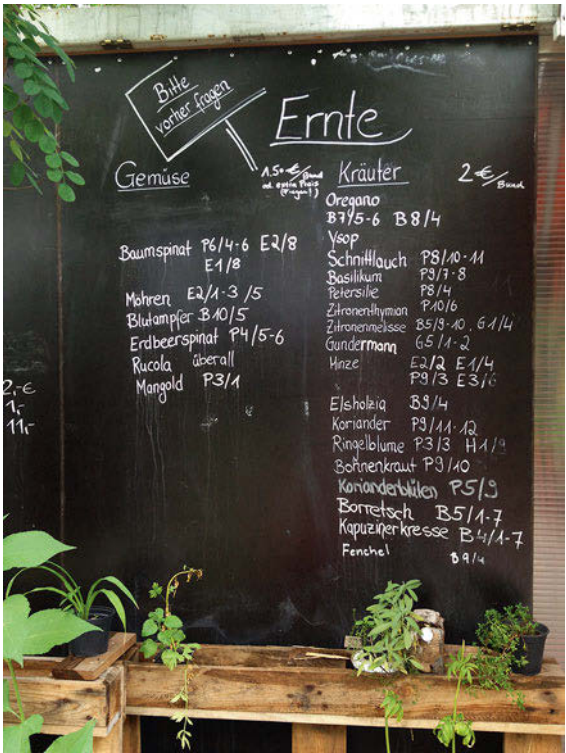 Bitte
vorher fragen
Ernte
Gemüse
1.50 €/Bund
od. extra Preis
(Fragen!)
Baumspinat P6/4-6 E2/8
E1/8
Möhren E2/1-3 /5
Blutampfer B10/5
Erdbeerspinat P4/5-6
Rucola überall
Mangold P3/1
Kräuter 2 €/Bund
Oregano
B7/5-6 B8/4
Ysop
Schnittlauch P8/10-11
Basilikum P9/7-8
Petersilie P8/4
Zitronenthymian P10/6
Zitronenmelisse B5/9-10, G1/4
Gundermann G5/1-2
Minze E2/2 E1/4
P9/3 E3/6
Elsholzia B9/4
Koriander P9/11-12
Ringelblume P3/3 H1/9
Bohnenkraut P9/10
Korianderblüten P5/9
Borretsch B5/1-7
Kapuzinerkresse B4/1-7
Fenchel B9/4
2,-€
1,-
11,-